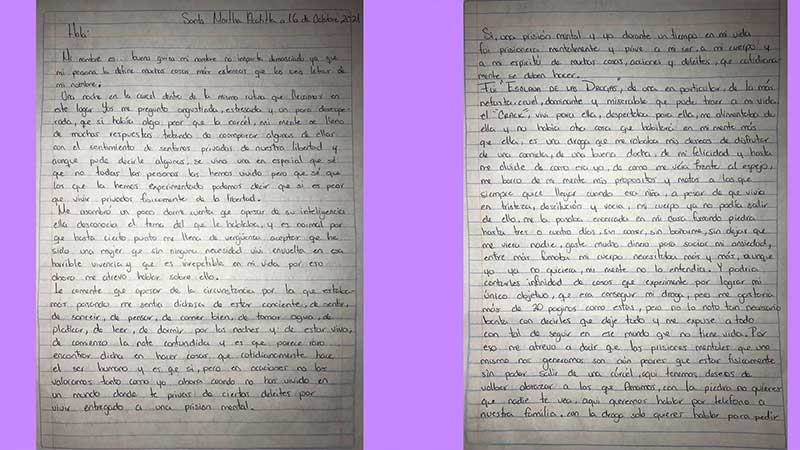 Santa Martha Acatitla a 16 de Octubre 2021
Hola:
Mi nombre es... bueno quiza mi nombre no importa demasiado ya que
mi persona la define muchas cosas más extensas que las seis letras de
mi nombre.
Una noche en la carcel dentro de la misma rutina que llevamos en
este lugar. Una me pregunto angustiada, estresada y un poco desespe-
rada, que si había algo peor que la carcel, mi mente se lleno
de muchas respuestas tratando de comparar algunas de ellas
con el sentimiento de sentirnos privadas de nuestra libertad y
aunque pude decirle algunas, se vino una en especial que sé
que no todas las personas las hemos vivido pero que sé que
los que la hemos experimentado podemos decir que si es peor
que vivir privados fisicamente de la libertad.
Me asombró un poco darme cuenta que apesar de su inteligencia
ella desconocia el tema del que le hablaba, y es normal por
que hasta cierto punto me llena de vergüenza aceptar que he
sido una mujer que sin ninguna necesidad vivi envuelta en esa
horrible vivencia y que es irrepetible en mi vida por eso
ahora me atrevo hablar sobre ello.
Le comente que apesar de la circunstancia por la que estaba-
mos pasando me sentia dichosa de estar conciente, de sentir,
de sonreir, de pensar, de comer bien, de tomar agua, de
platicar, de leer, de dormir por las noches y de estar viva,
de comienzo la note confundida y es que parece raro
encontrar dicha en hacer cosas, que cotidianamente hace
el ser humano y es que si, pero en ocasiones no las
valoramos tanto como yo ahora cuando no has vivido en
un mundo donde te privas de ciertos deleites por
vivir entregado a una prision mental.
Si, una prisión mental y yo durante un tiempo en mi vida
fui prisionera mentalmente y prive a mi ser, a mi cuerpo y
a mi espiritu de muchas cosas, acciones y deleites, que cotidiana-
mente se deben hacer.
Fui "Esclava de las Drogas", de una en particular, de la más
nefasta, cruel, dominante y miserable que pude traer a mi vida,
el "CRACK", vivía para ella, despertaba para ella, me alimentaba de
ella y no había otra cosa que habitara en mi mente más
que ella, es una droga que me robaba mis deseos de disfrutar
de una comida, de una buena ducha, de mi felicidad y hasta
me olvide de como era yo, de como me veía frente al espejo,
me borro de mi mente mis propositos y metas a las que
siempre quise llegar cuando era niña, a pesar de que vivia
en tristeza, desilución y vacia, mi cuerpo ya no podía salir
de ello, me la pasaba encerrada en mi casa fumando piedra
hasta tres o cuatro días, sin comer, sin bañarme, sin dejar que
me viera nadie, gaste mucho dinero para saciar mi ansiedad,
entre más fumaba mi cuerpo necesitaba más y más, aunque
yo ya no quisiera, mi mente no lo entendía. Y podría
contarles infinidad de cosas que experimente por lograr mi
único objetivo, que era conseguir mi droga, pero me gastaria
más de 20 paginas como estas, pero no lo noto tan necesario
basta con decirles que deje todo y me expuse a todo
con tal de seguir en ese mundo que no tiene vida. Por
eso me atrevo a decir que las prisiones mentales que uno
mismo nos generamos son aún peores que estar fisicamente
sin poder salir de una cárcel, aqui tenemos deseos de
volver abrazar a los que Amamos, con la piedra no quieres
que nadie te vea, aqui queremos hablar por telefono a
nuestra familia, con la droga solo quieres hablar para pedir